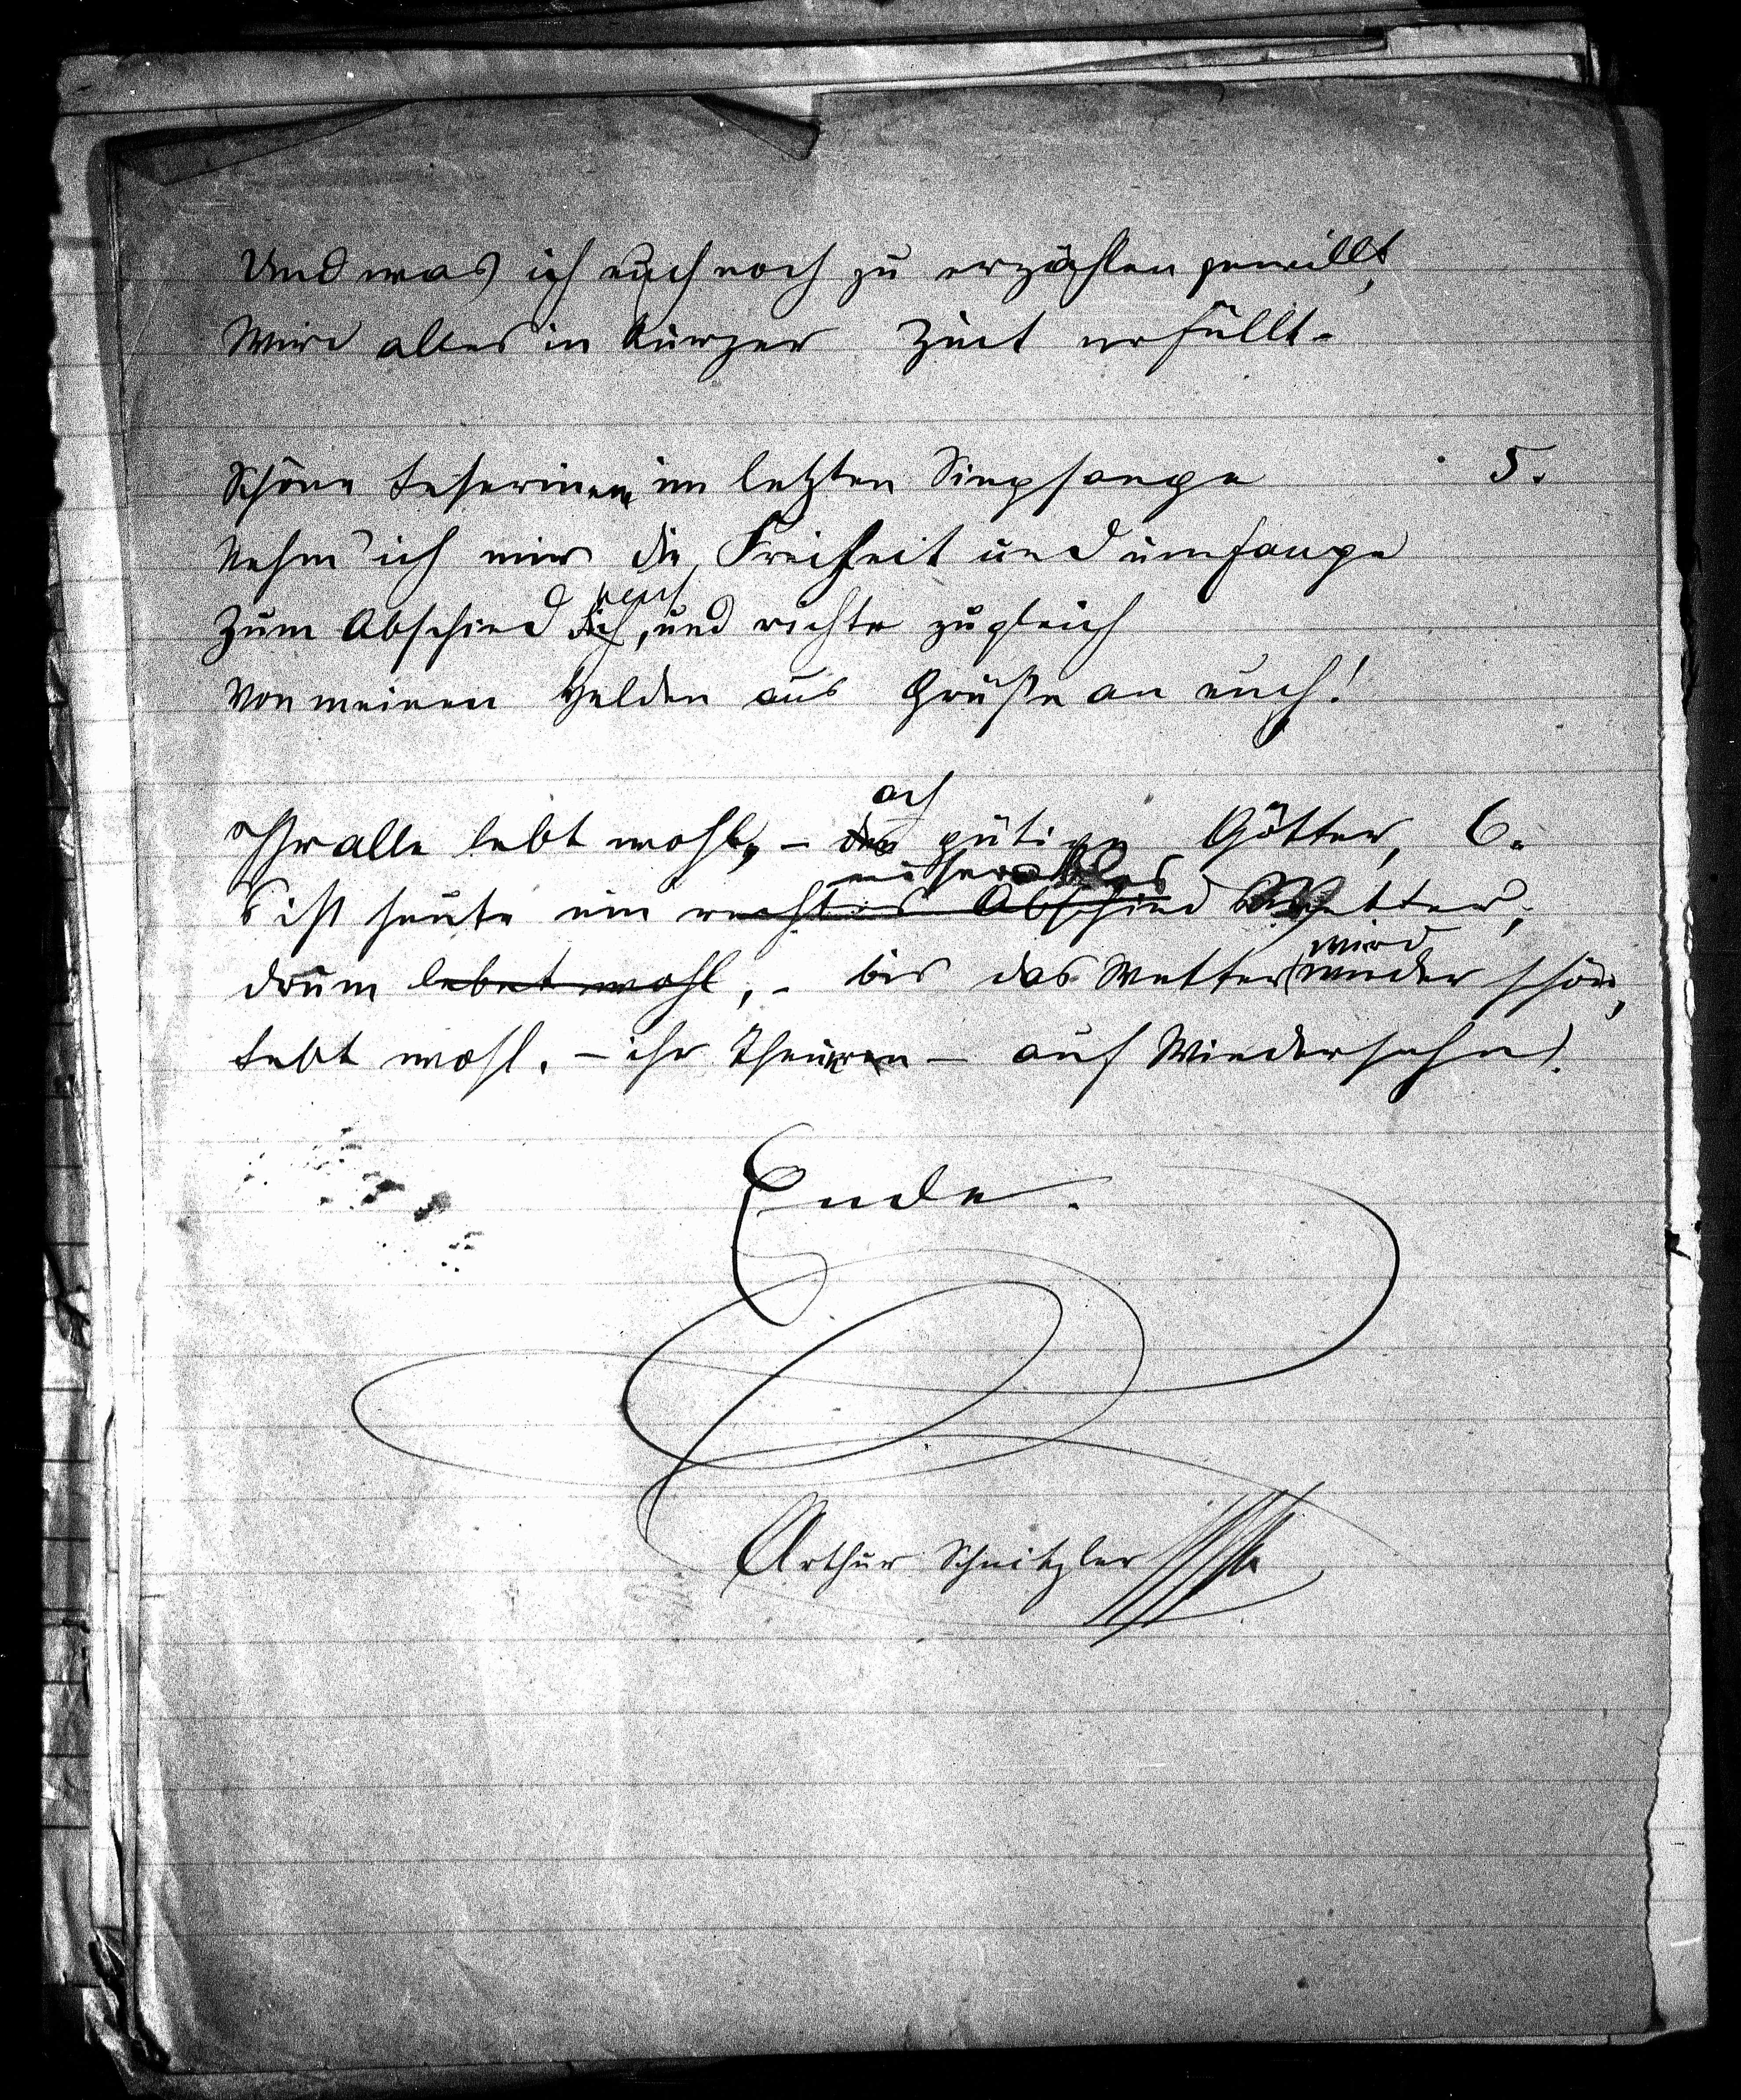 Und was ich euch noch zu erzählen gewillt,
Wird alles in kurzer Zeit erfüllt.
Schöne Leserinnen im letzten Singsange 5.
Nehm' ich mir die Freiheit und umfange
euch
Zum Abschied dich, und richte zugleich
Von meinen Helden aus Grüße an euch!
ach
Ihr alle lebt wohl, – das gütige Götter, 6.
miserables
S ist heute ein rechtes Abschied Wetter;
wird
drum lebet wohl, – bis das Wetter wieder schön,
Lebt wohl. – ihr Theuren – auf Wiedersehn!
Ende.
Arthur Schnitzler